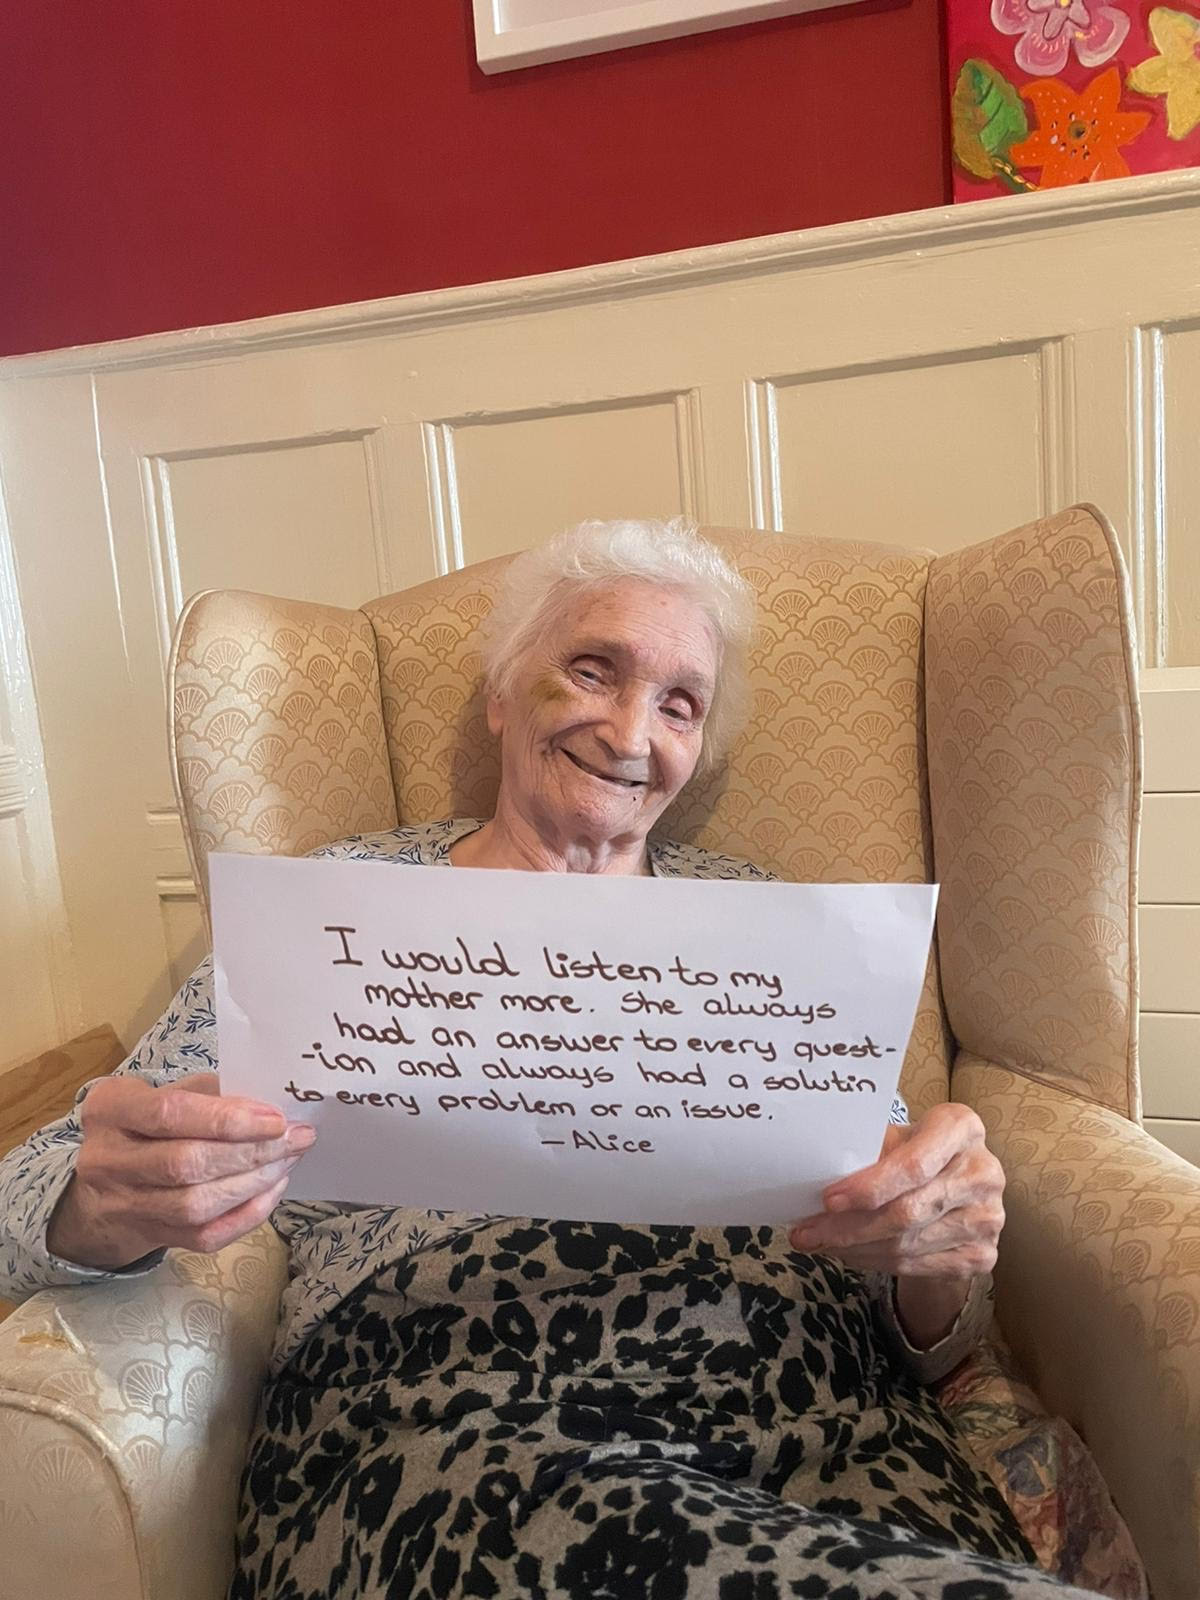 I would listen to my
mother more. She always
had an answer to every quest-
-ion and always had a solutin
to every problem or an issue.
- Alice